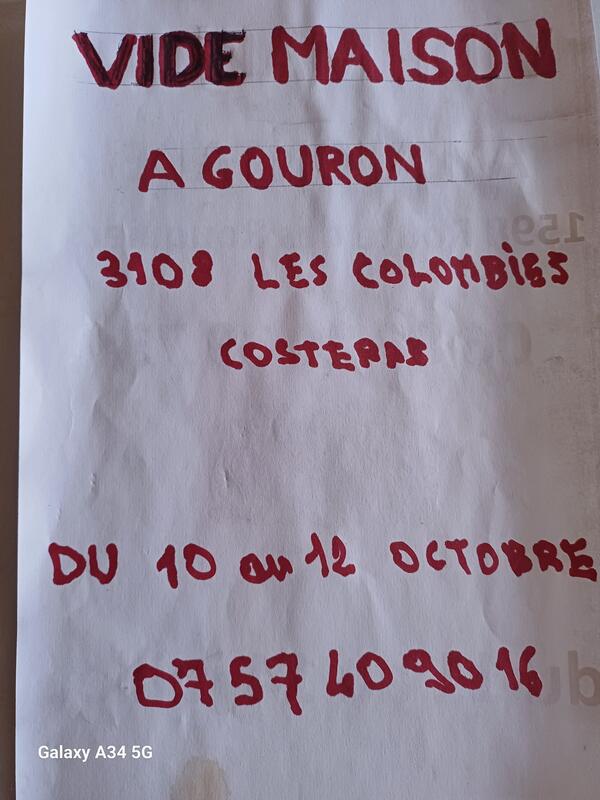 VIDE MAISON
A GOURON
3108 LES COLOMBIES
COSTERAS
DU 10 au 12 OCTOBRE
07 57 40 90 16
Galaxy A34 5G